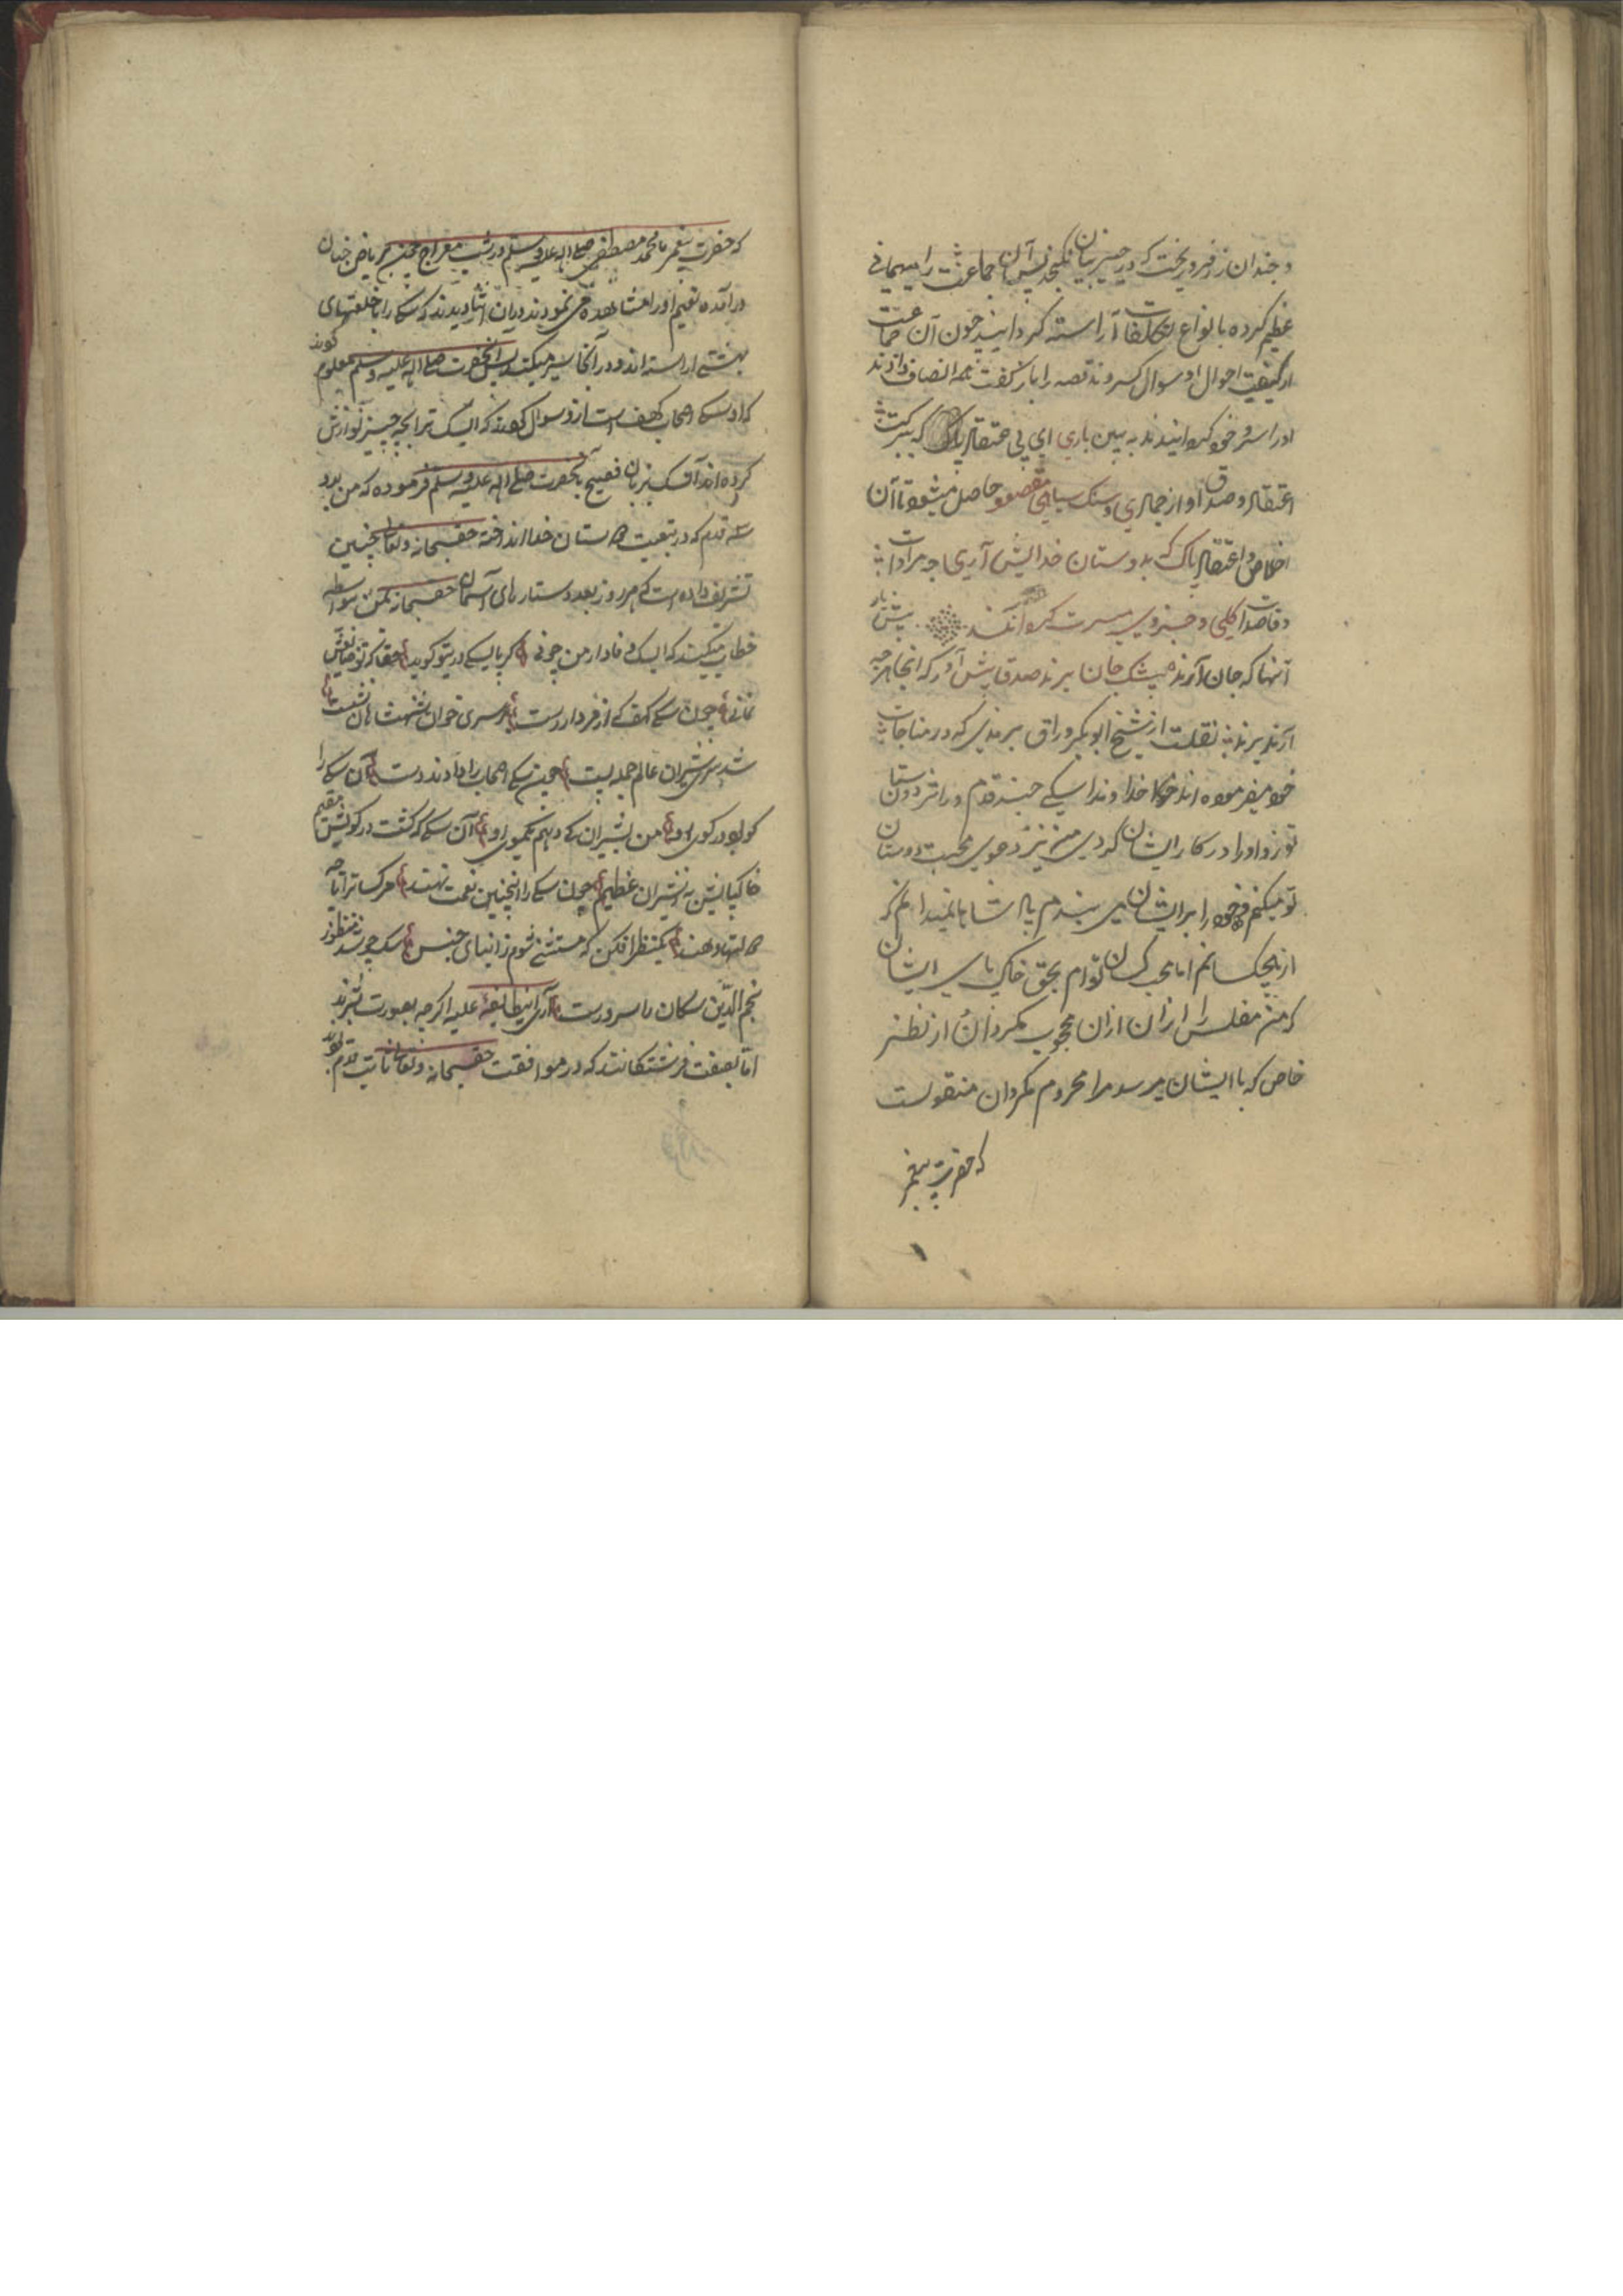 و چندان زر فرو ریخت که در حیز بیان نکنجد پس آن جماعت را میهمانی
عظیم کرده بانواع تکلفات آراسته کردانید چون آن جماعت
از کیفیت احوال او سوال کردند قصه را باز کفت همه انصاف دادند
او را سرور خود کردانیدند به بین باری ای بی اعتقاد پاک که ببرکت
اعتقاد و صدق او از جمادی و سنک سیاهی مقصود حاصل میشود تا آن
اخلاص و اعتقاد پاک که بدوستان خدا پیش آری چه مرادات
و مقاصدات کلی و جزوی میسرت کردانند پیش یار
آنها که جان آرند پیشک جان برند صدق پیش آور که اینجا هر چه
آرند برند نقلست از شیخ ابوبکر وراق که در مناجات
خود میفرموده اند خداوندا سکی چند قدم در اثر دوستان
تو زد او را در کار ایشان کردی من نیز دعوی محبت دوستان
تو میکنم و خود را بر ایشان می بندم پادشاها نمیدانم که
از هیچکسانم اما محب کسان توام بحق خاک پای ایشان
که من مفلس را از ان محجوب مکردان از نظر
خاص که با ایشان میرسد مرا محروم مکردان منقولست
که حضرت پیغمبر
که حضرت پیغمبر ما محمد مصطفی صلی الله علیه وسلم در شب معراج بریاض جنان
در آمده نعیم او را مشاهده می نمودند در ان اثنا دیدند که سکی را با خلعتهای
بهشتی آراسته اند و در آنجا سیر میکند پس آنحضرت صلی الله علیه وسلم معلوم کردند
که او سک اصحاب کهف است از و سوال کردند که ای سک ترا بچه چیز نوازش
کرده اند آن سک بزبان فصیح بآنحضرت صلی الله علیه وسلم فرموده که من بدو
سه قدم که در تبعیت دوستان خدا انداخته حقسبحانه وتعالی چنین
تشریف داده است که هر روز بعدد ستارهای آسمان حقسبحانه بمن بواسطه
خطاب میکند که ای سک وفادار من چونی کر با سکی در تو کوید حقا که تو
نمانی چون سک کهف که از فردا رست بر سر خوان شهنشاهان نشست
شد سر شیران عالم جمله پست چون سک اصحاب را دادند دست آن سکی را
کو بود در کوی او من بشیران کی دهم یکموی او آن سکی که کشت در کویش مقیم
خاک پایش به ز شیران عظیم چون سکی را اینچنین نعمت نهند هر کسا ترا تا چه
دولتها دهند یکنظر افکن که مستثنی شوم ز ابنای جنس سک چو شد منظور
نجم الدین سکان را سرورست آری اینطایفه علیه اکرچه بصورت بشرند
اما بصفت فرشتکانند که در موافقت حقسبحانه وتعالی ثابت قدم بودند